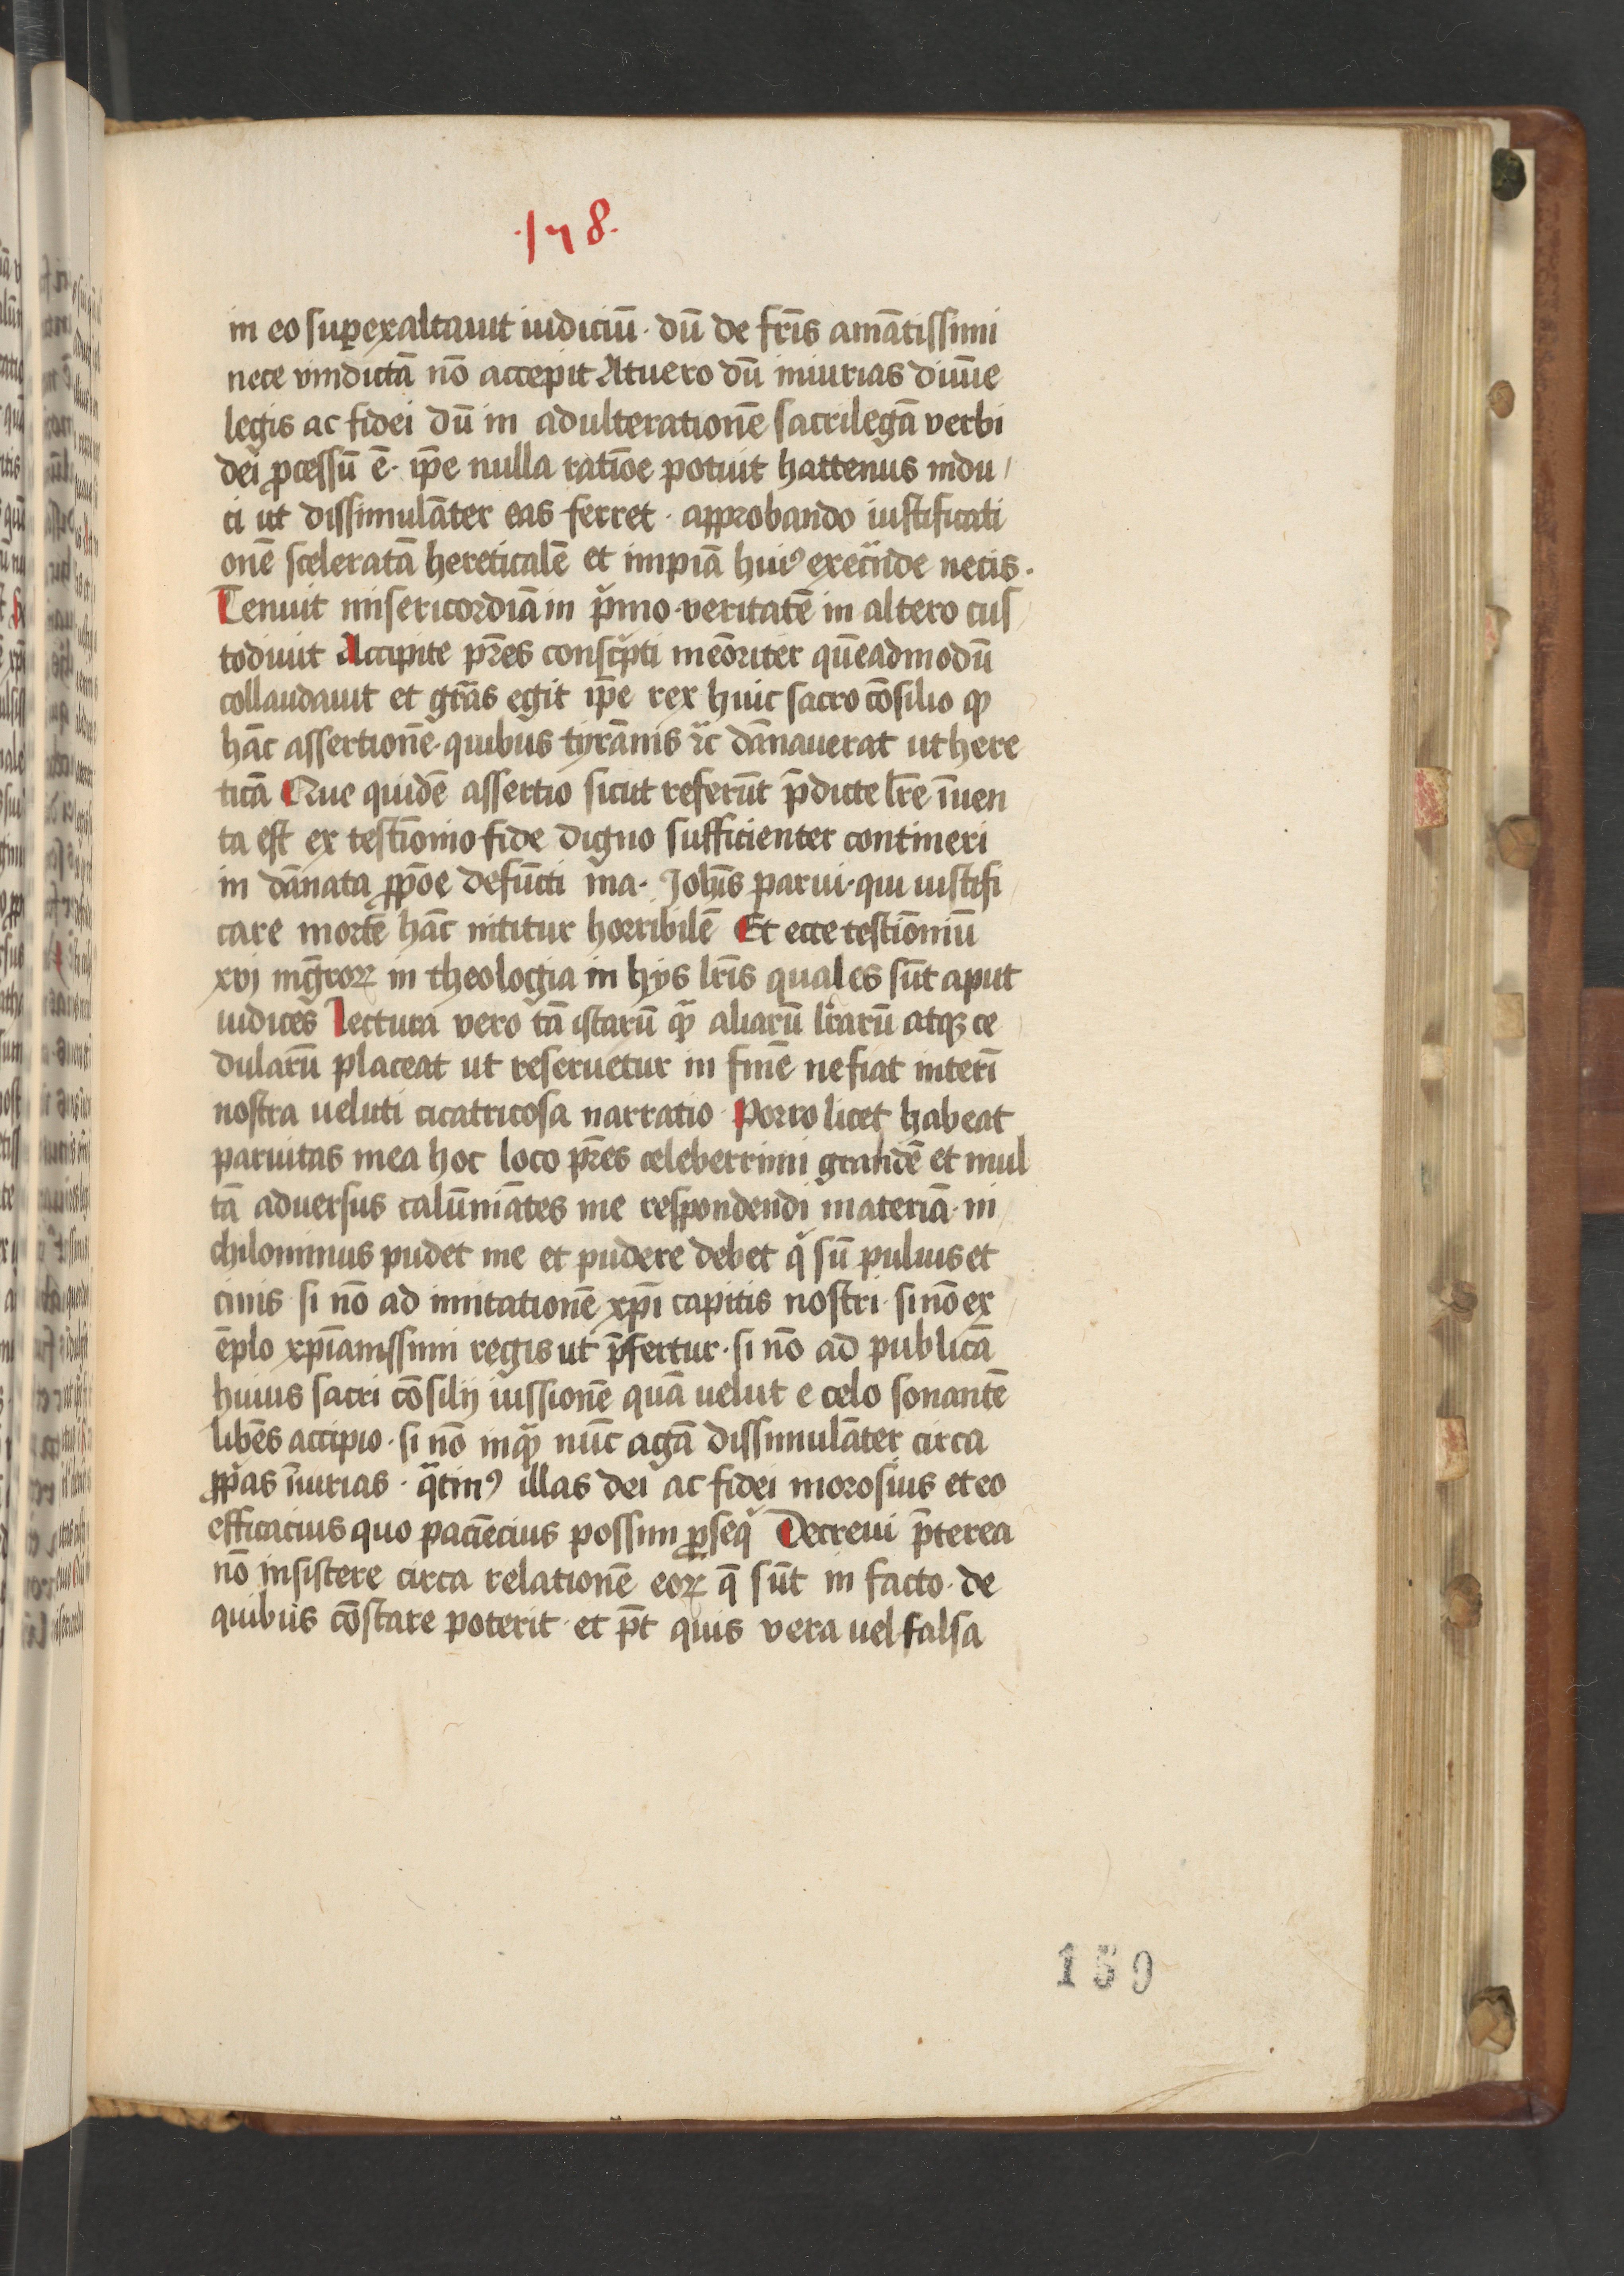 ·148·
in eo superexaltauit iudiciū· dū de fr̄is amātissimi
nece vindictā nō accepit Atuero dū iniurias diuīe
legis ac fidei dū in adulterationē sacrilegā verbi
dei ꝓcessū ē· ip̄e nulla ratiōe potuit hattenus indu/
ci ut dissimulāter eas ferret· approbando iustificati
onē sceleratā hereticalē et impiā huiꝰ execr̄ide necis·
Tenuit misericordiā in pͥmo·veritatē in altero cus
todiuit Accipite pr̄es conscͥpti memōriter quēadmodū
collaudauit et gr̄as egit ip̄e rex huic sacro cōsilio ꝙ
hāc assertionē·quibus tyrānis ⁊c dānauerat ut here
ticā Que quidē assertio sicut referūt p̄dicte lr̄e īuen
ta est ex testimōnio fide digno sufficienter contineri
in dānata ꝓpōe defūcti ma· Joh̄is parui·qui iustifi
care mortē hāc nititur horribilē Et ecce testimōniū
xvj mgr̄oꝝ in theologia in hijs lr̄is quales sūt aput
iudices Lectura vero tā istarū qͣꝫ aliarū lr̄arū atqꝫ ce
dularū placeat ut reseruetur in finē ne fiat interī
nostra ueluti cicatricosa narratio· Porro licet habeat
paruitas mea hoc loco pr̄es celeberrimi grandē et mul
tā aduersus calūniātes me respondendi materiā·ni
chilominus pudet me et pudere debet qͥ sū puluis et
cinis· si nō ad imitationē xp̄i capitis nostri· si nō ex
ēplo xp̄ianissimi regis ut p̄fertur· si nō ad publicā
huius sacri cōsilij iussionē quā uelut e celo sonantē
libēs accipio· si nō inqͣꝫ nūc agā dissimulāter circa
ꝓpͥas īiurias· qͣtinꝰ illas dei ac fidei morosius et eo
efficacius quo paciēcius possim ꝓseqͥ Decreui p̄terea
nō insistere circa relationē eoꝝ q̄ sūt in facto· de
quibus cōstare poterit· et p̄t quis vera uel falsa
159